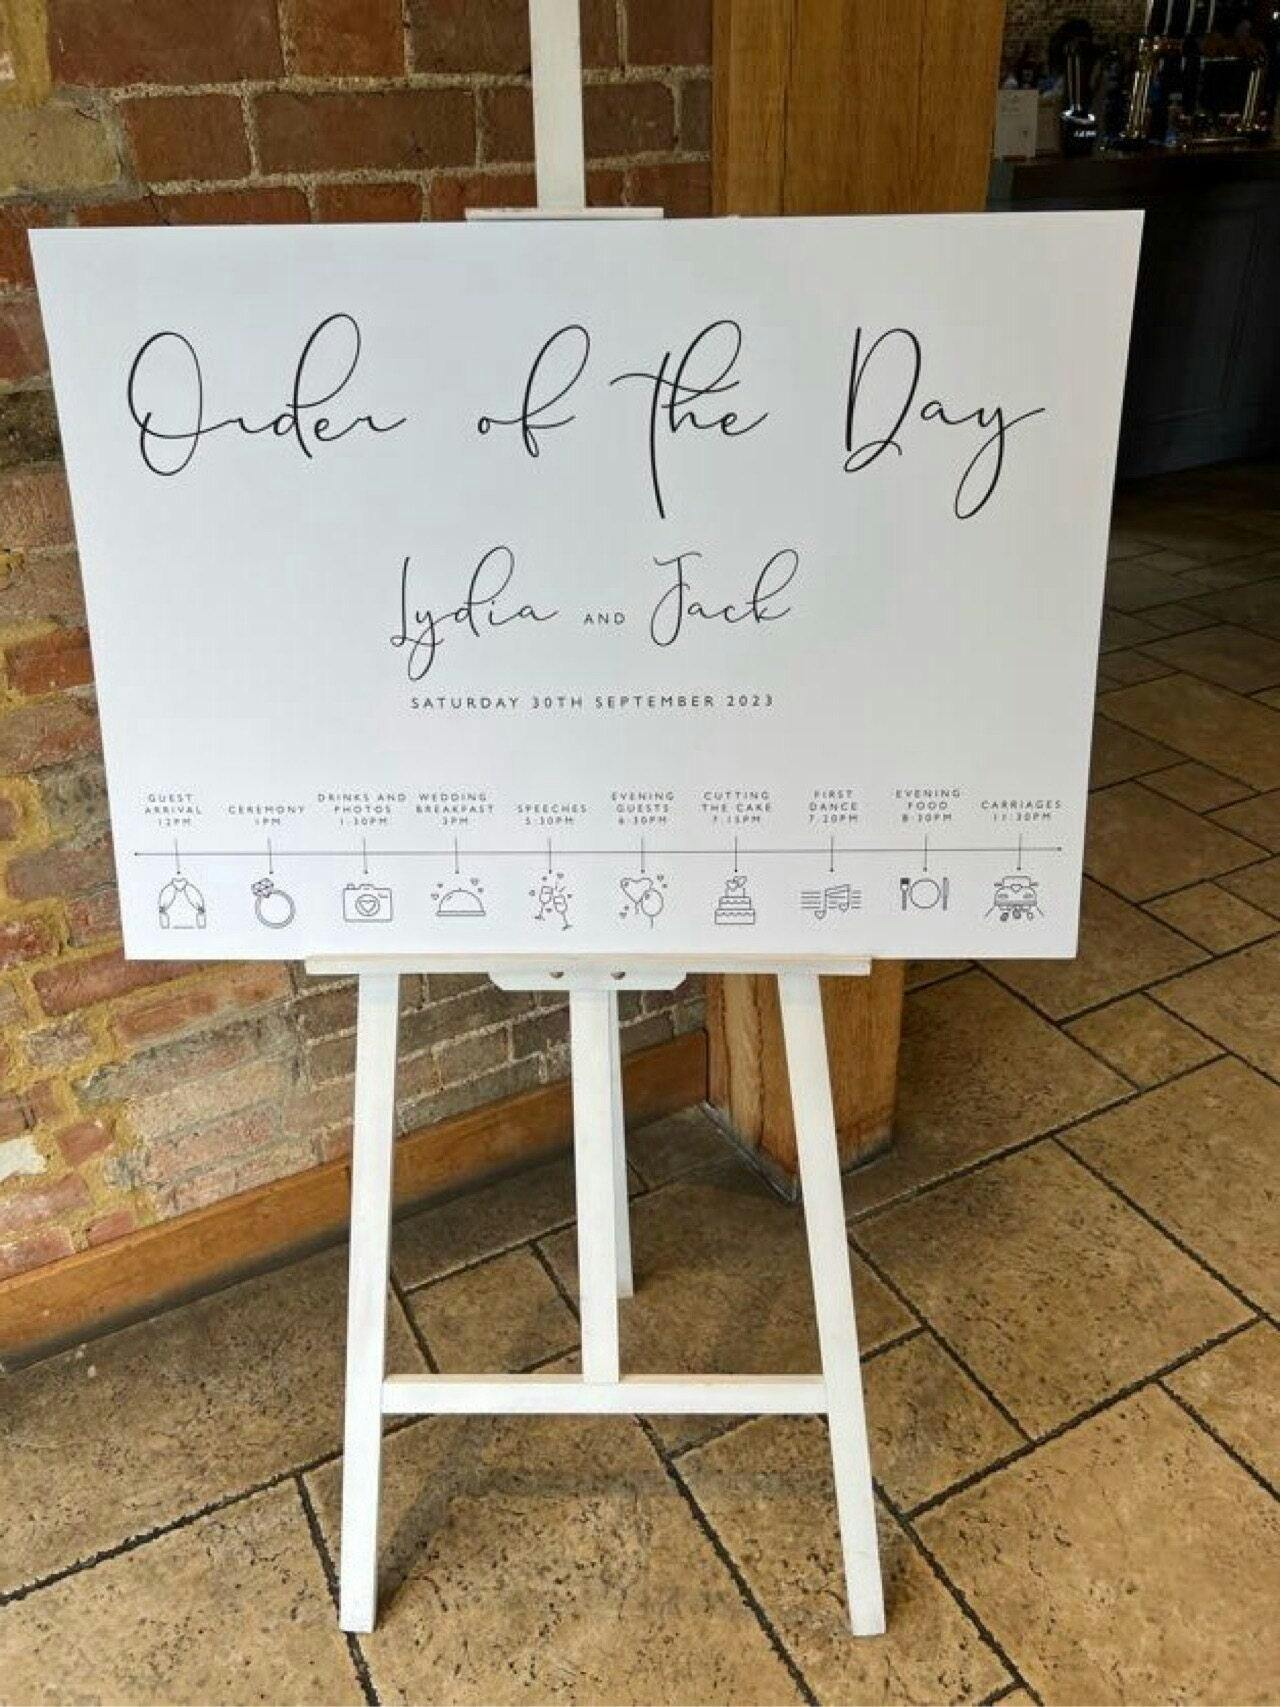 Order of the Day
Lydia AND Jack
SATURDAY 30TH SEPTEMBER 2023
GUEST
ARRIVAL
12PM
CEREMONY
1PM
DRINKS AND
PHOTOS
1:30PM
WEDDING
BREAKFAST
3PM
SPEECHES
5:30PM
EVENING
GUESTS
6:30PM
CUTTING
THE CAKE
7:15PM
FIRST
DANCE
7:20PM
EVENING
FOOD
8:30PM
CARRIAGES
11:30PM